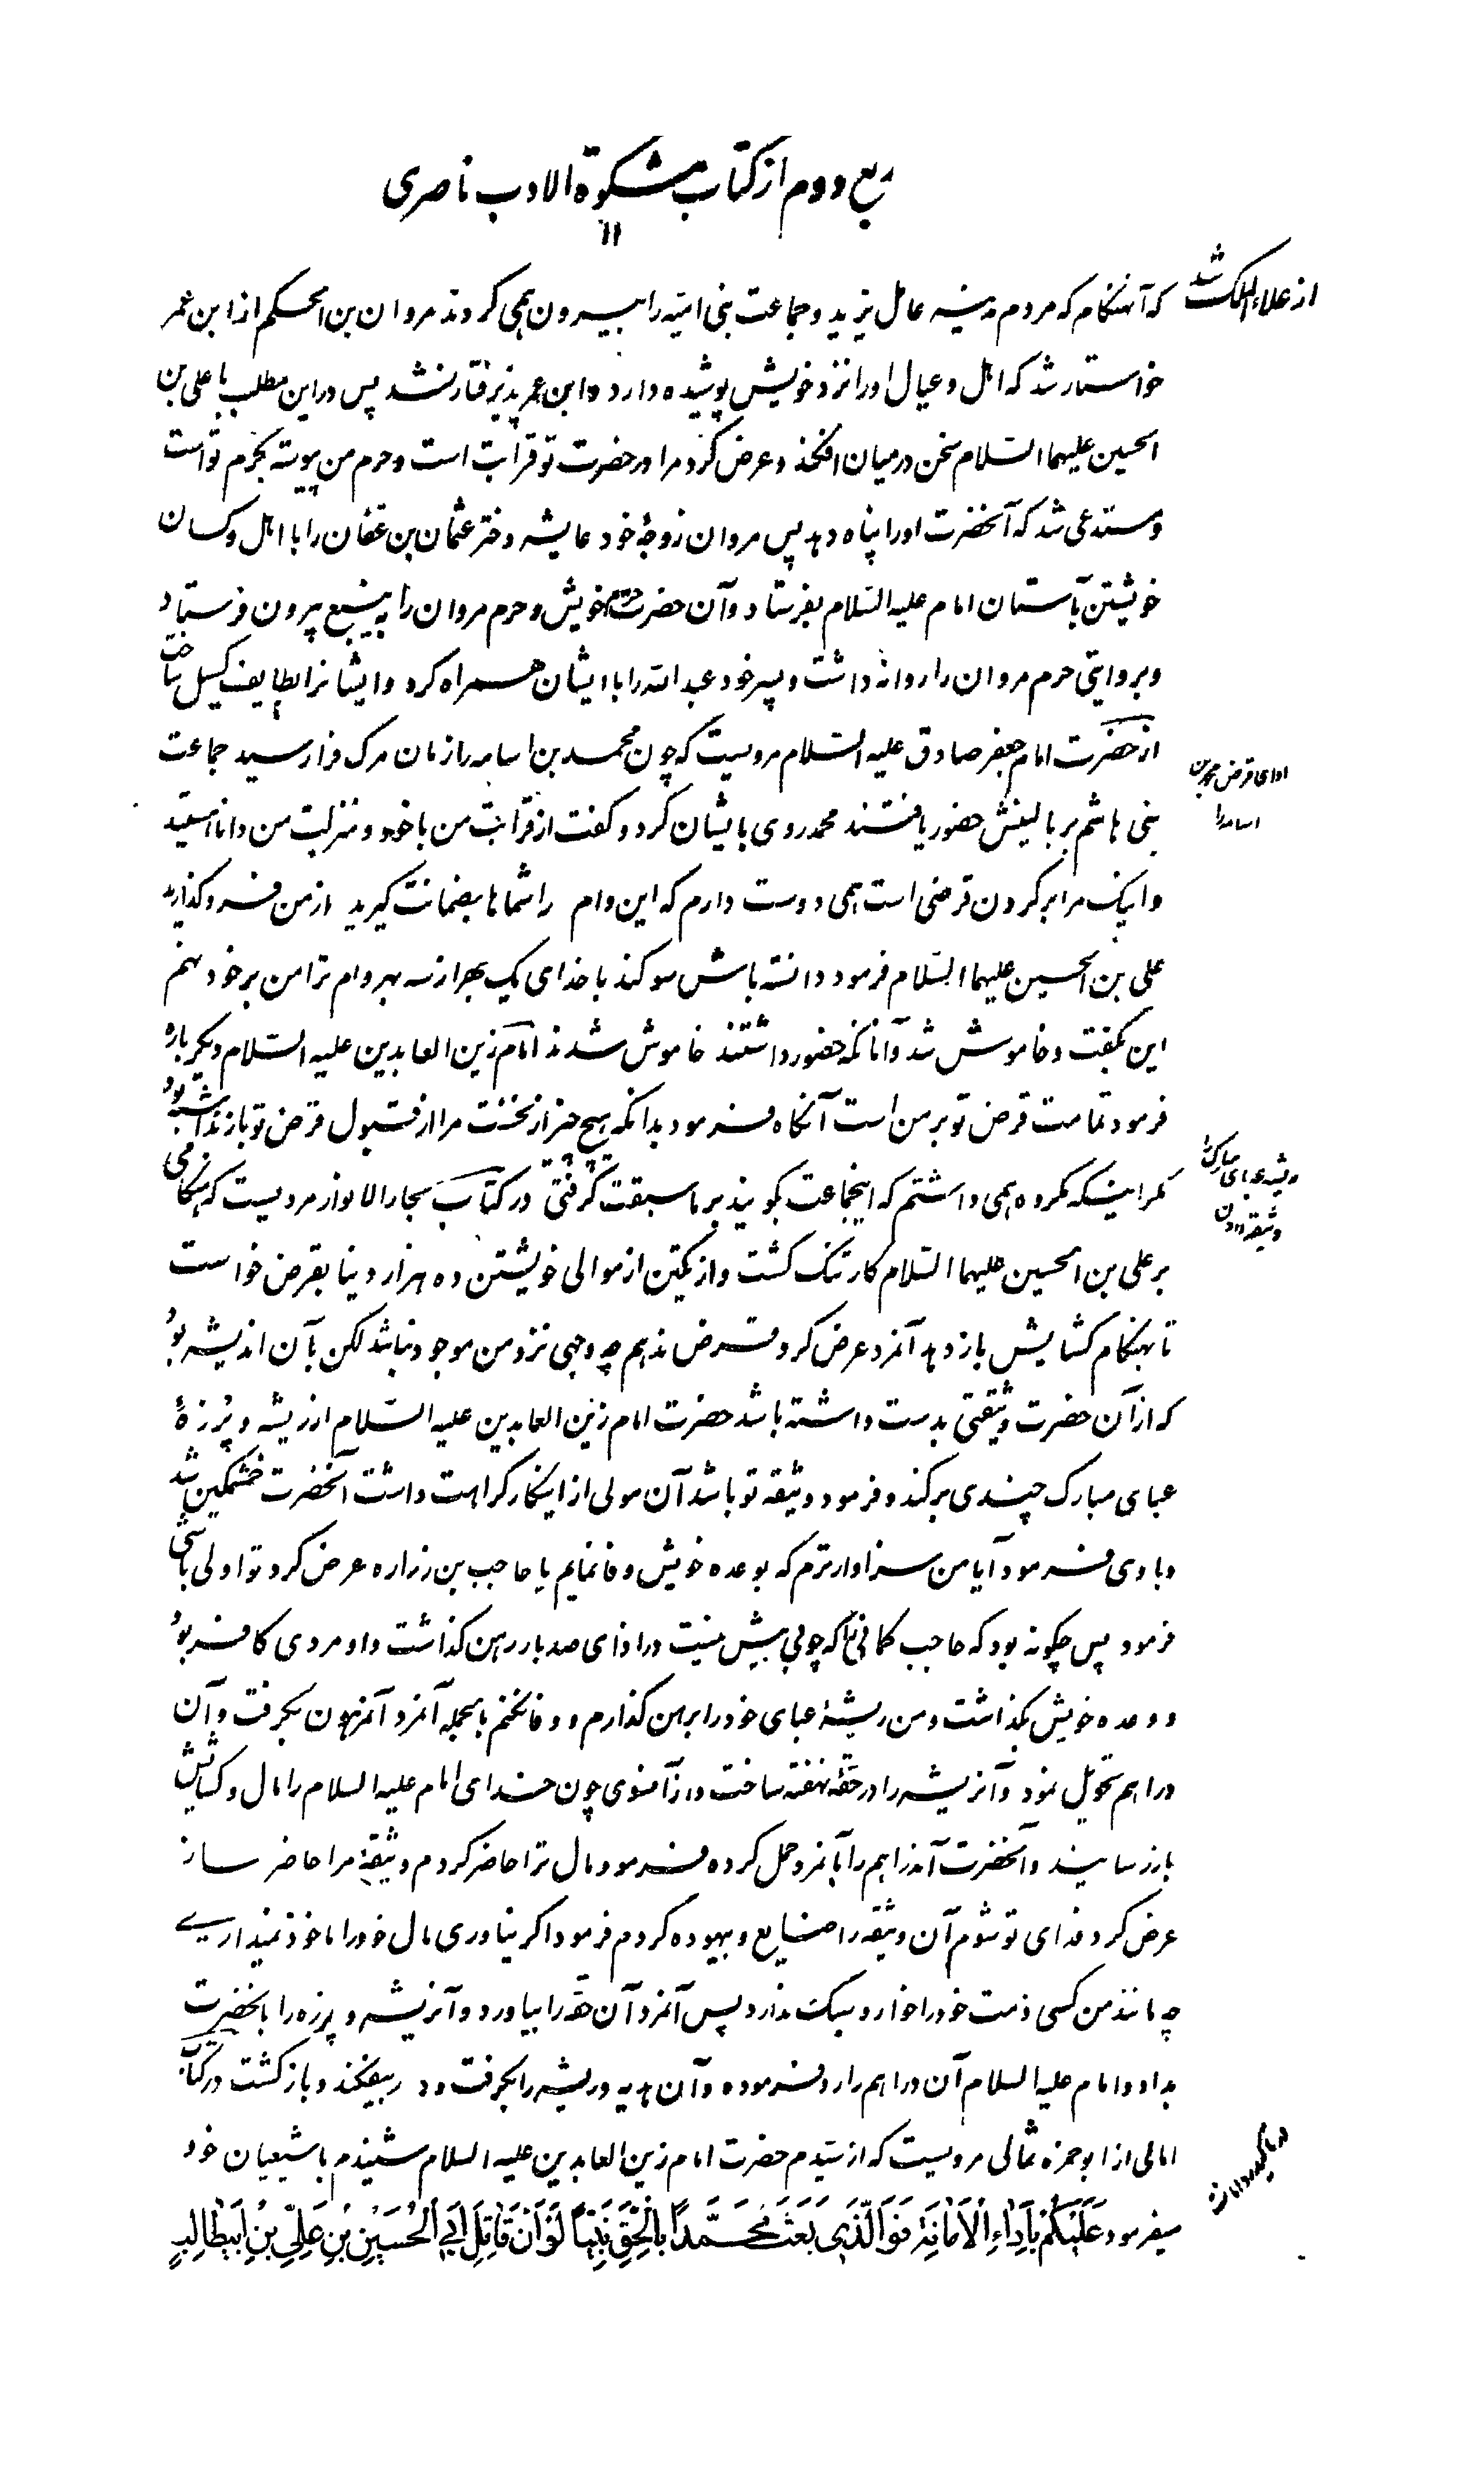 ربع دوم از کتاب مشکوة الادب ناصری
۱۱
از علاء الملک شد
که آنهنگام که مردم مدینه عامل یزید و جماعت بنی امیّه را بیرون همی کردند مروان بن الحکم از ابن عمر
خواستار شد که اهل و عیال او را نزد خویش پوشیده دارد و ابن عمر پذیرفتار نشد پس در این مطلب با علی بن
الحسین علیهما السّلام سخن در میان افکند و عرض کرد مرا در حضرت تو قرابت است و حرم من پیوسته بحرم تو است
و مستدعی شد که آنحضرت او را پناه دهد پس مروان زوجهٔ خود عایشه دختر عثمان بن عفّان را با اهل و کسان
خویشتن بآستان امام علیه السّلام بفرستاد و آن حضرت حرم خویش و حرم مروان را به ینبع بیرون فرستاد
و بروایتی حرم مروان را روانه داشت و پسر خود عبدالله را با ایشان همراه کرد و ایشانرا بطایف گسیل ساخت
از حضرت امام جعفر صادق علیه السّلام مرویست که چون محمد بن اسامه را زمان مرک فرا رسید جماعت
ادای قرض محمد بن
اسامه را
بنی هاشم بر بالینش حضور یافتند محمد روی بایشان کرد و کفت از قرابت من با خود و منزلت من دانا هستید
و اینک مرا بر کردن قرضی است همی دوست دارم که این وام را شماها بضمانت کیرید از من فرو کذارید
علی بن الحسین علیهما السّلام فرمود دانسته باش سوکند با خدای یک بهر از سه بهر وام ترا من بر خود نهم
این بکفت و خاموش شد و آنانکه حضور داشتند خاموش شدند امام زین العابدین علیه السّلام دیکر باره
فرمود تمامت قرض تو بر من است آنکاه فرمود بدانکه هیچ چیز از نخست مرا از قبول قرض تو باز نداشته بود
مکر اینکه مکروه همی داشتم که اینجماعت بکویند بر ما سبقت کرفتی در کتاب بحار الانوار مرویست که هنکامی
ریشه عبای مبارک را
وثیقه دادن
بر علی بن الحسین علیهما السّلام کار تنک کشت و از یکتن از موالی خویشتن ده هزار دینار بقرض خواست
تا بهنکام کشایش باز دهد آنمرد عرض کرد قرض ندهم چه وجهی نزد من موجود نباشد لکن بآن اندیشه بود
که از آن حضرت وثیقتی بدست داشته باشد حضرت امام زین العابدین علیه السّلام از ریشه و پُرزهٔ
عبای مبارک چندی برکند و فرمود وثیقه تو باشد آن مولی از اینکار کراهت داشت آنحضرت خشمکین شد
و با وی فرمود آیا من سزاوارترم که بوعده خویش وفا نمایم یا حاجب بن زراره عرض کرد تو اولی باشی
فرمود پس چکونه بود که حاجب کمانی را که چوبی بیش نیست در ازای صد بار رهن کذاشت و او مردی کافر بود
و وعده خویش بکذاشت و من ریشهٔ عبای خود را برهن کذارم و وفا نکنم بالجمله آنمرد آنمرهون بکرفت و آن
دراهم تحویل نمود و آنریشه را در حقّه نهفته ساخت و از آنسوی چون خدای امام علیه السلام را مال و کشایش
باز رسانید و آنحضرت آندراهم را بآنمرد حمل کرده فرمود مال ترا حاضر کردم وثیقهٔ مرا حاضر ساز
عرض کرد فدای تو شوم آن وثیقه را ضایع و بیهوده کردم فرمود اکر نیاوری مال خود را ماخوذ نمیداری
چه مانند من کسی ذمت خود را خوار و سبک ندارد پس آنمرد آن حقّه را بیاورد و آنریشه و پرزه را بآنحضرت
بداد و امام علیه السلام آن دراهم را رد فرموده و آن هدیه و ریشه را بکرفت و بیفکند و باز کشت در کتاب
امالی از ابو حمزه ثمالی مرویست که از سیّدم حضرت امام زین العابدین علیه السلام شنیدم با شیعیان خود
میفرمود عَلَیْکُمْ بِاَدَاءِ الْاَمَانَةِ فَوَالَّذِی بَعَثَ مُحَمَّداً بِالْحَقِّ نَبِیّاً لَوْ اَنَّ قَاتِلَ اَبِی الْحُسَیْنِ بْنِ عَلِیِّ بْنِ اَبِیطَالِبٍ